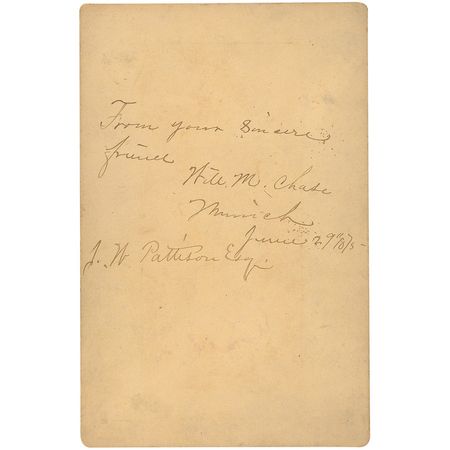 From your sincere
friend
Will. M. Chase
Munich
June 29th/75
J. W. Pattison Esq.